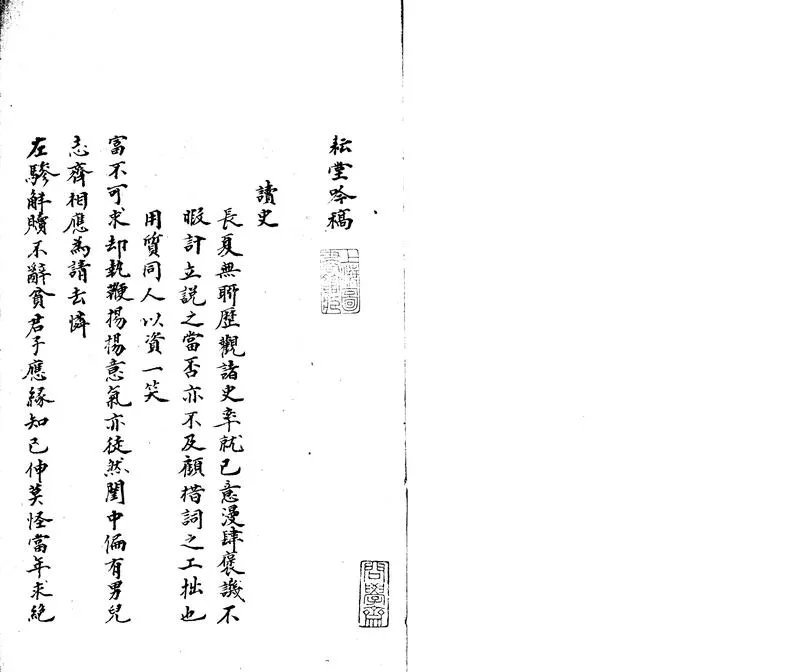 耘堂吟稿
讀史
長夏無聊歷觀諸史率就己意漫肆褒譏不
暇計立説之當否亦不及顧措詞之工拙也
用質同人以資一笑
富不可求却執鞭揚揚意氣亦徒然閨中偏有男兒
志齊相應為請去憐
左驂解贖不辭貧君子應緣知己伸莫怪當年求絶
問學齋